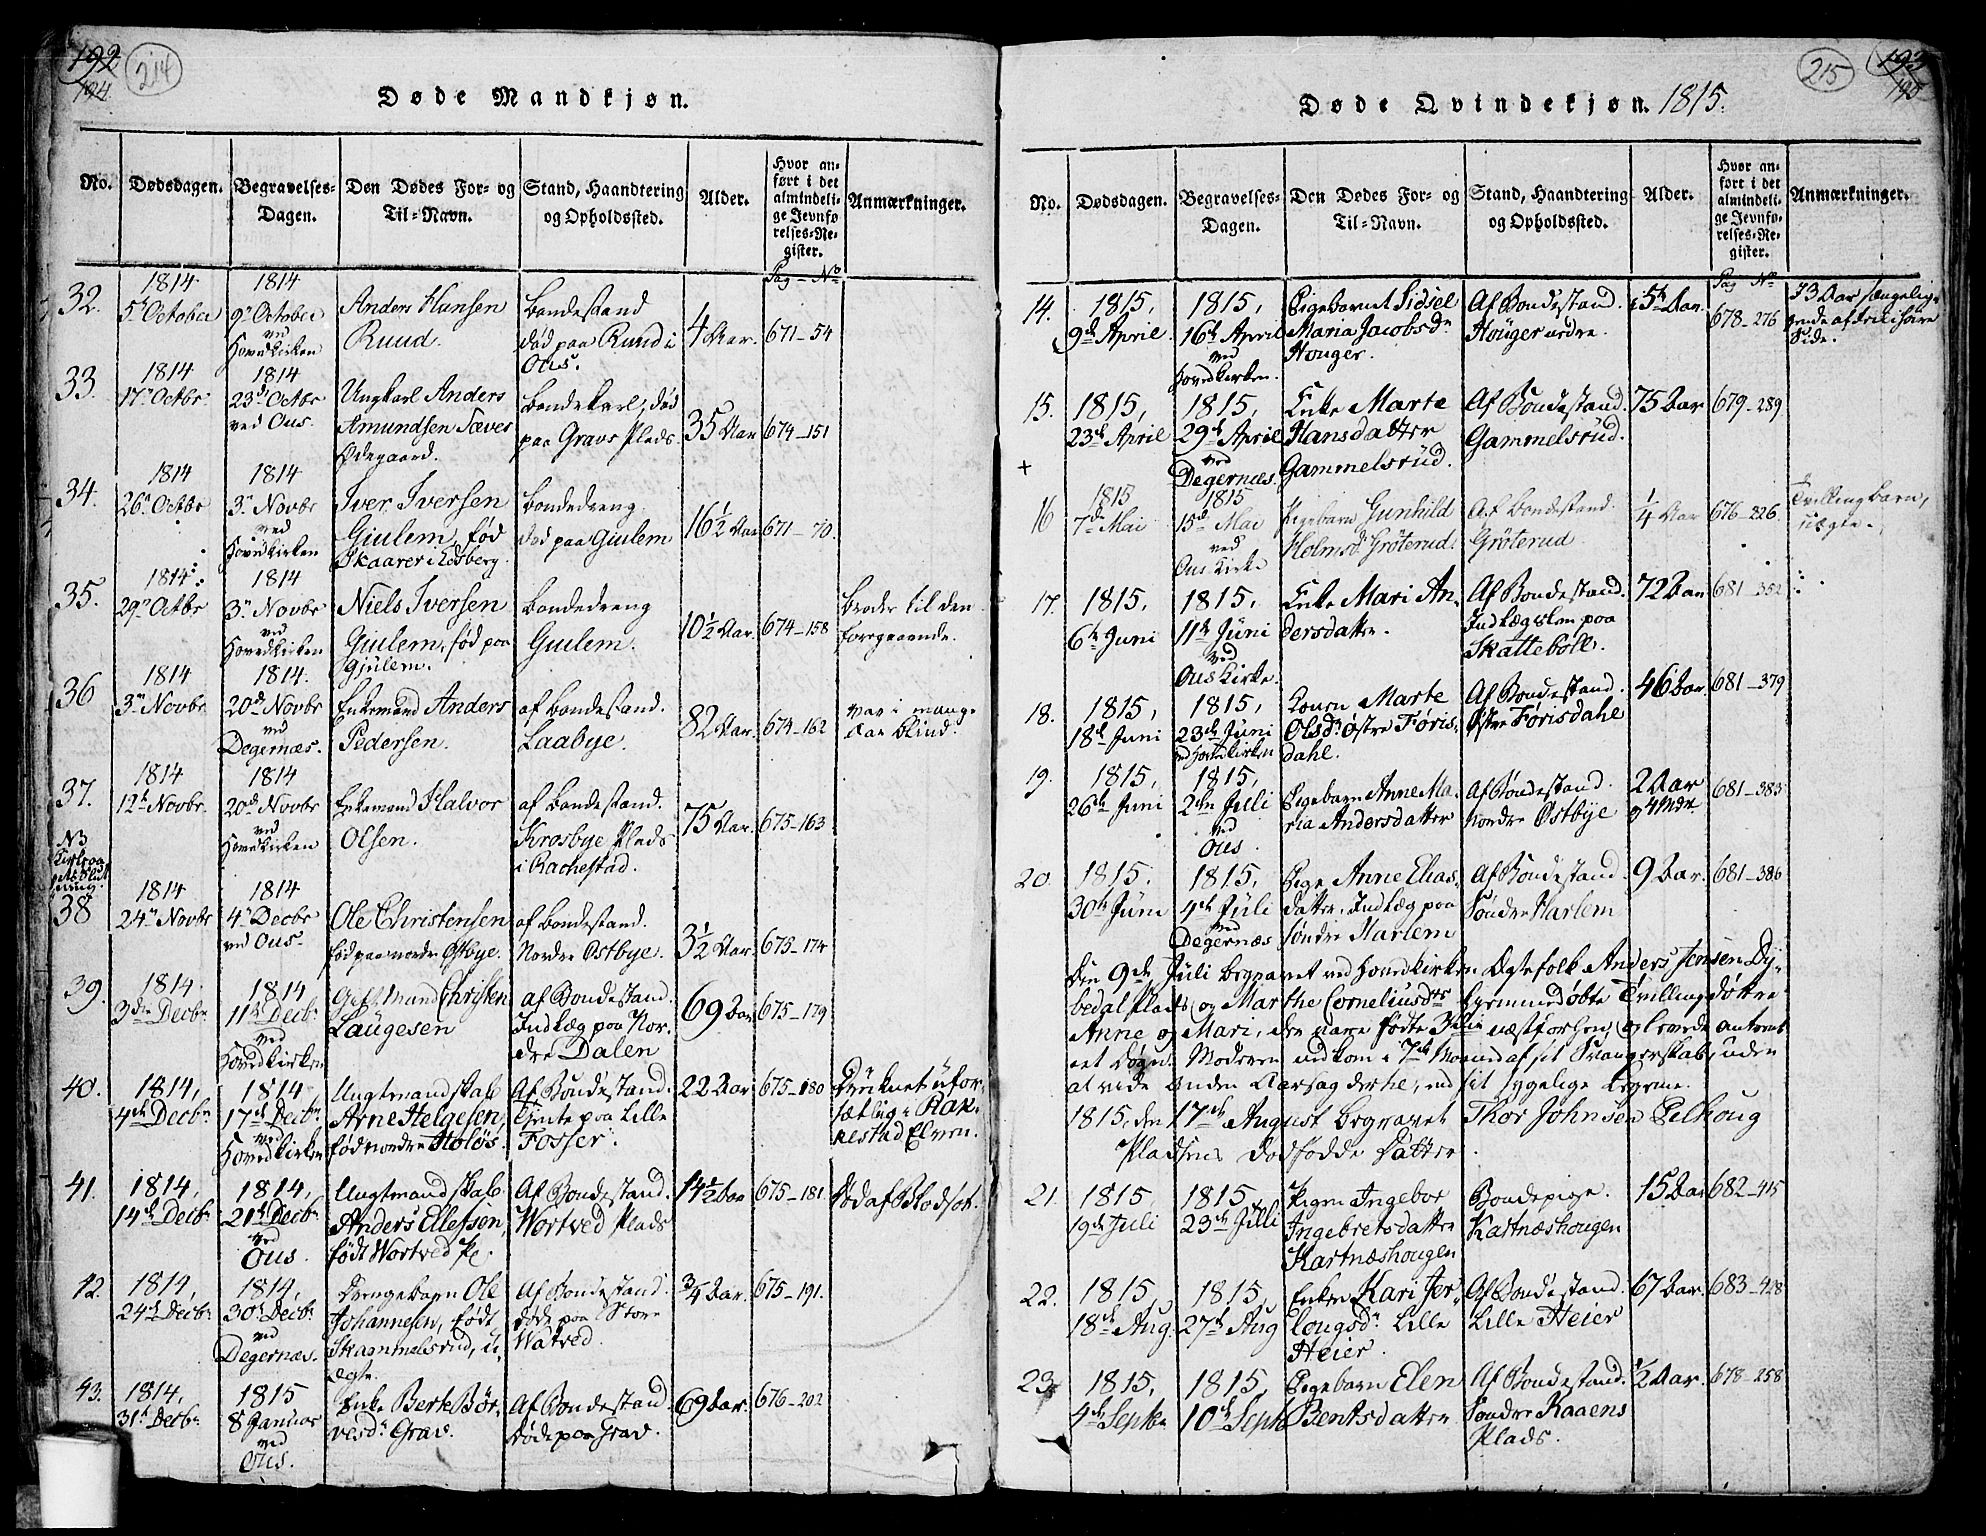 192
194
214
Døde Mandkjøn.
No.
Dødsdagen.
Begravelses-
Dagen.
Den Dødes For- og
Til-Navn.
Stand, Haandtering
og Opholdssted.
Alder.
Hvor an-
ført i det
almindeli-
ge Jevnfø
relses-Re-
gister.
Anmærkninger.
Pag - No
32.
1814
5te October
1814
9de October
ved
Hovedkirken
Anders Hansen
Ruud.
Bondestand
død paa Ruud i
Ous.
4 Aar.
671-54
33.
1814
17de Octbr
1814
23de Octbr
ved Ous.
Ungkarl Anders
Amundsen Tæves
Ødegaard.
Bondekarl, død
paa Gravs Plads.
35 Aar
674-151
34.
1814
26de Octbr
1814
3de Novbr
ved
Hovedkirken
Iver Iversen
Giulem, fød
Skaarer i Edsberg.
Bondedreng
død paa Giulem
16½ Aar
671-70.
35.
1814
29de Octbr
1814
3de Novbr
ved
Hovedkirken
Niels Iversen
Giulem, fød paa
Gjulem.
Bondedreng
Giulem.
10½ Aar.
674-158
Broder til den
foregaaende.
36
1814
3de Novbr
1814.
20de Novbr
ved
Degernæs.
Enkemand Anders
Pedersen.
af Bondestand.
Laabye.
82 Aar.
674-162
var i mange
Aar blind.
37.
1814
12te Novbr.
1814
20de Novbr
ved
Hovedkirken
Enkemand Halvor
Olsen.
af Bondestand.
Krosbye Plads
i Rachestad.
75 Aar.
675-163
38
1814
24de Novbr
1814
4de Decbr
ved Ous.
Ole Christensen
fød paa nordre Østbye.
af Bondestand.
Nordre Østbye.
3½ Aar.
675-174
39.
1814.
3die Decbr
1814
11te Decbr
ved
Hovedkirken
Gift Mand Christen
Laugesen
af Bondestand.
Indlæg paa Nor-
dre Dalen
69 Aar
675-179
40.
1814,
4de Decbr
1814
17de Decbr
ved
Hovedkirken
Ungtmandskab
Arne Helgesen,
fød nordre Holøs.
Af Bondestand.
Tjente paa Lille
Fosser.
22 Aar
675-180
Druknet ufor-
sætlig i Rak-
kestad Elven.
41.
1814,
14de Decbr
1814,
21de Decbr
ved
Ous.
Ungtmandskab
Anders Ellefsen,
født Wortved Pl.
Af Bondestand.
Wortved Plads
14½ Aar
675-181.
Død af Blodsot.
42.
1814,
24de Decbr
1814,
30te Decbr
ved
Degernæs.
Drengebarn Ole
Johannesen, født
Skammelsrud, u-
ægte.
Af Bondestand.
døde paa Store
Watved
¾ Aar.
675-191.
43.
1814,
31te Decbr
1815
8 Januar
ved
Ous.
Enke Berte Bør-
resdr Grav.
Af Bondestand
døde paa Grav.
69 Aar.
676-202
215
193
195
Døde Qvindekjøn. 1815.
No.
Dødsdagen.
Begravelses-
Dagen.
Den Dødes For- og
Til-Navn.
Stand, Haandtering
og Opholdssted.
Alder.
Hvor an-
ført i det
almindeli-
ge Jevnfø-
relses-Re-
gister.
Anmærkninger.
Pag No
14.
1815,
9de April.
1815,
16de April
ved
Hovedkirken.
Pigebarnet Sidsel
Maria Jacobsdr
Houger.
Af Bondestand.
Houger nedre.
678-276
15.
1815,
23de April
1815,
29de April
ved
Degernæs.
Enke Marte
Hansdatter
Gammelsrud.
Af Bondestand.
Gammelsrud.
75 Aar
679-289
+
16
1815
7de Mai
1815
15de Mai
ved
Ous Kirke
Pigebarn Gunhild
Holmsd. Grøterud.
Af Bondestand.
Grøterud.
¼ Aar
676-226
Tvillingbarn,
uægte.
17.
1815,
6te Juni
1815,
11te Juni
ved
Ous Kirke.
Enke Mari An-
dersdatter.
Af Bondestand.
Indlægslem paa
Skattebøll.
72 Aar
681-352
18.
1815,
18de Juni
1815,
23de Juni
ved Hovedkirken
Konen Marte
Olsdr østre Føris-
dahl.
Af Bondestand.
Østre Førisdahl
46 Aar.
681-379
19.
1815,
26de Juni
1815,
2den Juli
ved
Ous.
Pigebarn Anne Ma-
ria Andersdatter
Af Bondestand.
Nordre Østbye
2 Aar
og 4 Mdr.
681-383
20.
1815.
30te Juni
1815,
4de Juli
ved
Degernæs
Pige Anne Elias-
datter, Indlæg paa
søndre Harlem
Af Bondestand
Søndre Harlem
9 Aar.
681-386
Den 9de Juli begravet ved Hovedkirken Ægtefolk Anders Jensen Dy-
bedal Plads og Marthe Corneliusdtrs hjemmedøbte Tvilling døttre
Anne og Mari, der vare fødte 3die næstforhen, og levede omtrent
et Døgn. Moderen nedkom i 7de Maaned af sit Svangerskab, uden
at vide anden Aarsag dertil, end sit sygelige Legeme.
1815, den 17de August begravet Thor Johnsen Pelhoug
Pladsens dødfødde Datter.
21.
1815
19de Juli
1815
23de Julli
Pigen Ingebor
Ingebretsdatter
Kartnæshougen
Bondepige.
Kartnæshougen
15 Aar
682-415
22.
1815,
18de Aug.
1815,
27de Aug
Enken Kari Jer-
Lille
Heier.
Af Bondestand.
Lille Heier
67 Aar.
683-428
23.
1815,
4de Septbr
1815,
10de Septbr
Pigebarn Elen
Bentsdatter
Af Bondestand.
Søndre Raaens
Plads.
½ Aar.
678-258